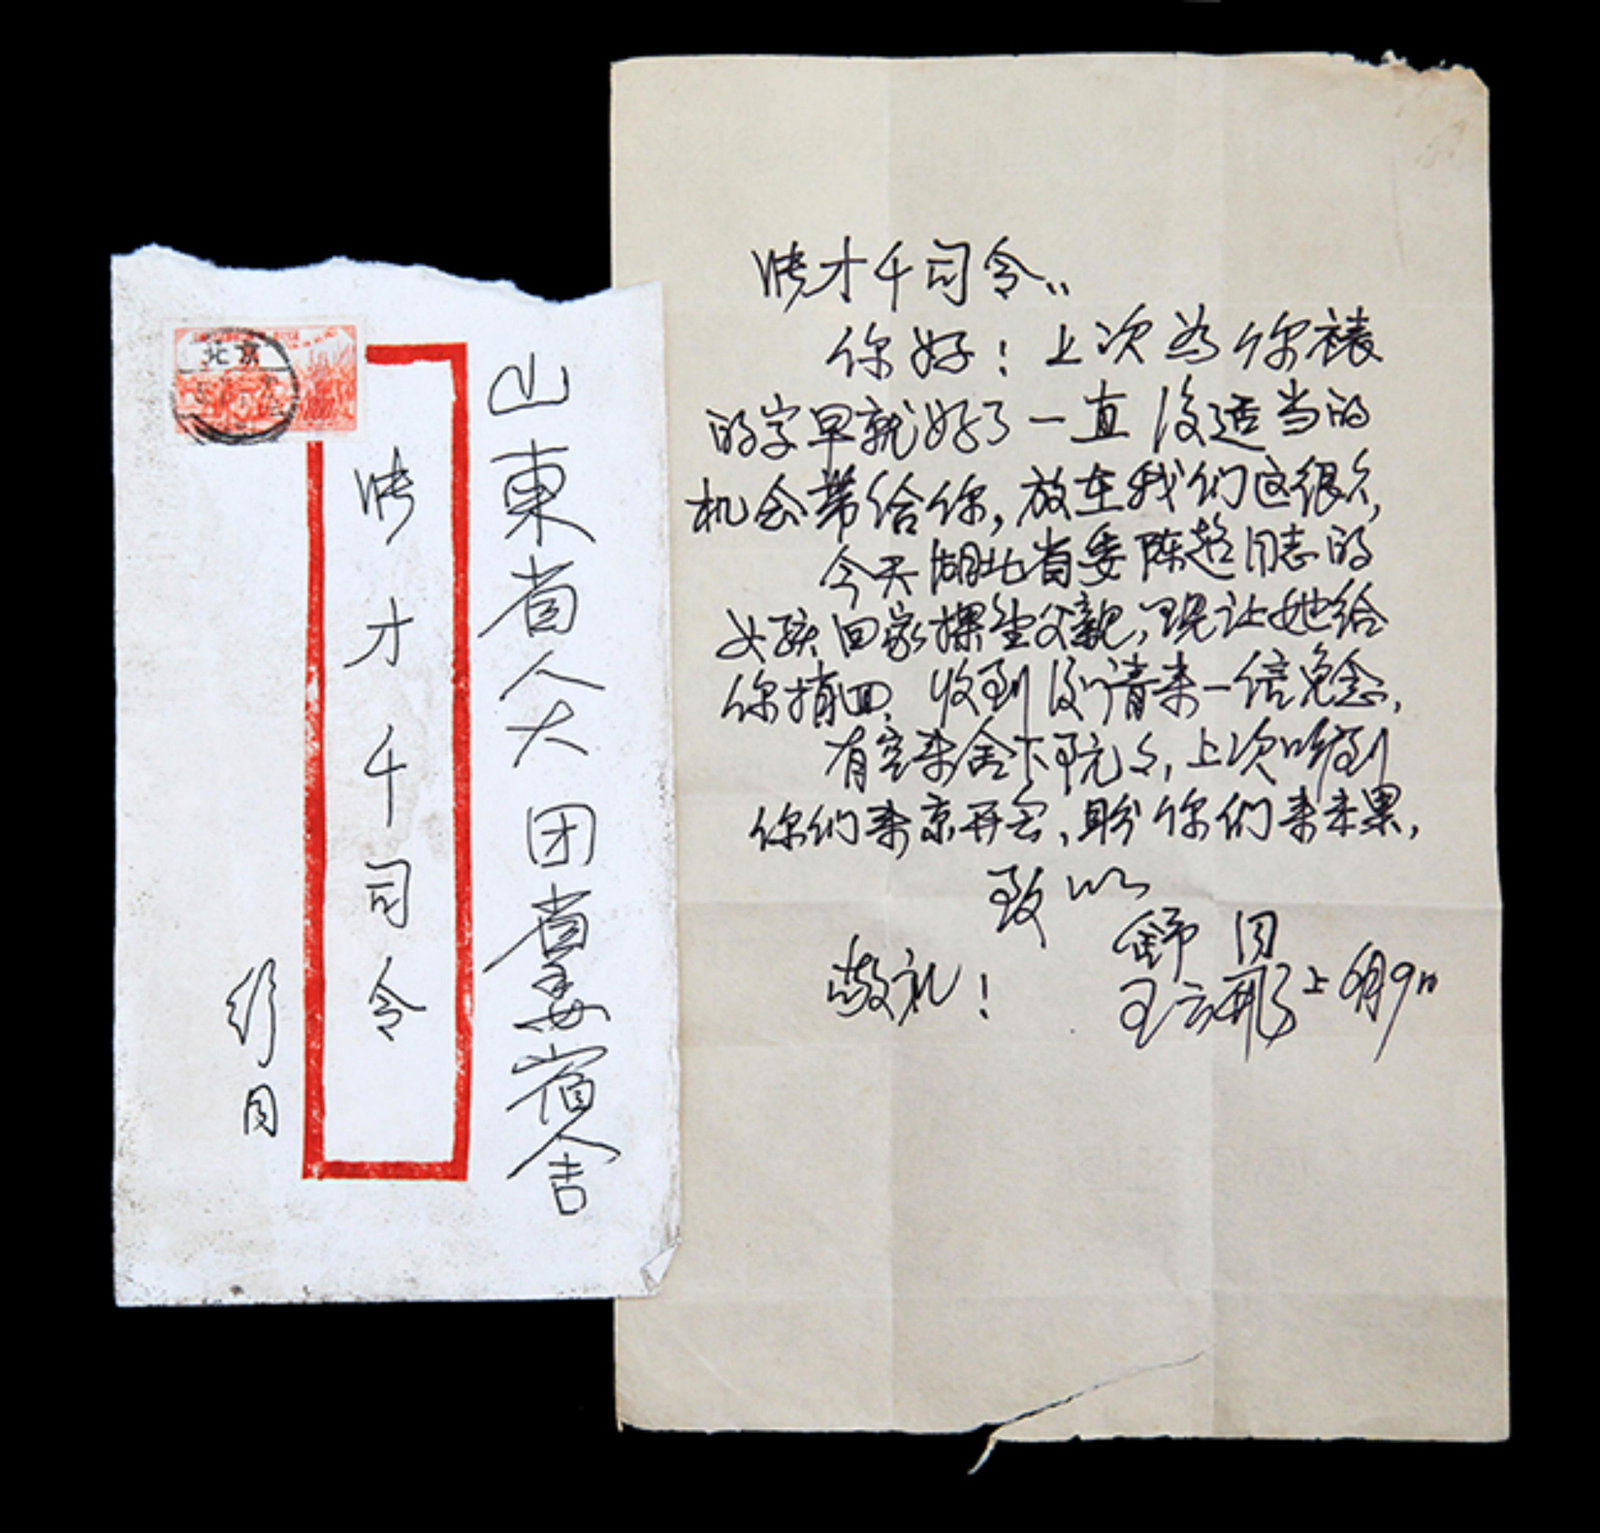 北京
800
山東省人大团省委宿舍
张才千司令
舒同
张才千司令:
你好!上次为你裱
的字早就好了一直没适当的
机会带给你,放在我们这很久,
今天湖北省委陈超同志的
女孩回家探望父親,现让她给
你捎回,收到后请来一信免念,
有空来舍下玩々,上次听到
你们来京开会,盼你们来未果,
致以
敬礼!
舒同
王云飛上 6月9日